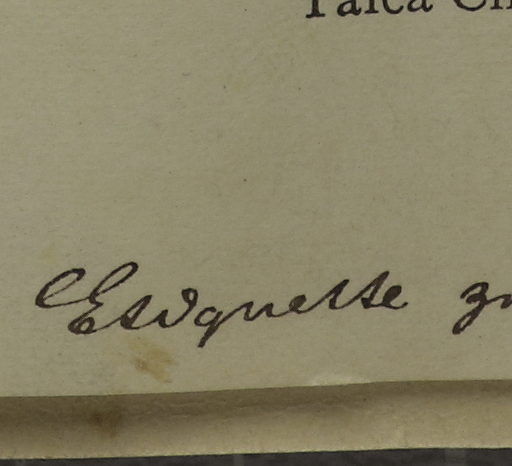 Talca Ch
Etiquette zu